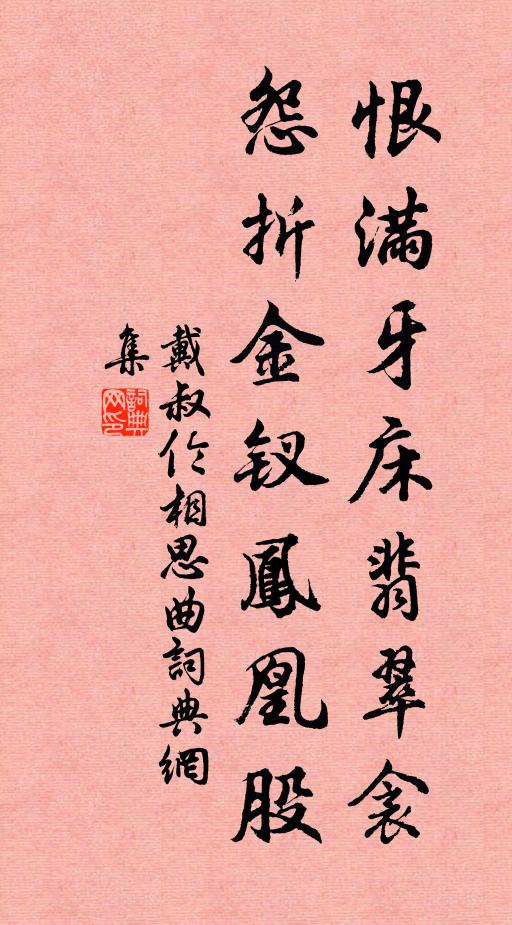 恨满牙床翡翠衾
怨折金钗鳳凰股
戴叔伦相思曲詞典網
集
詞典网印